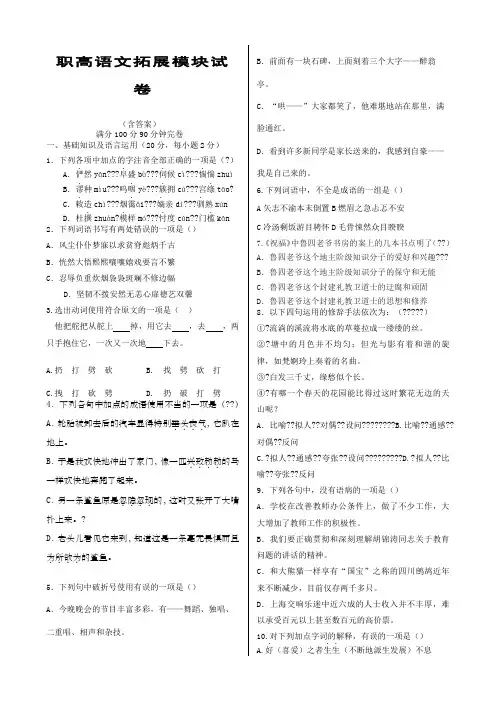 职高语文拓展模块试
卷
(含答案)
满分100分90分钟完卷
一、基础知识及语言运用(20分,每小题2分)
1.下列各项中加点的字注音全部正确的一项是(?)
A.俨然yǎn???阜盛bù???伺候cì???惴惴zhuì
B.谬种miu???呜咽yè???簇拥cù???宫绦tāo?
C.敕造chì???烟霭ǎi???嫡亲dí???驯熟xùn
D.杜撰zhuàn?模样mó???忖度cǔn??门槛kǎn
2.下列词语书写有两处错误的一项是()
A.风尘仆仆梦寐以求贫脊彪炳千古
B.恍然大悟熙熙嚷嚷嬉戏要言不繁
C.忍辱负重炊烟袅袅斑斓不修边幅
D.坚韧不拨安然无恙心扉德艺双馨
3.选出动词使用符合原文的一项是( )
他把舵把从舵上 掉,用它去 ,去 ,两
只手抱住它,一次又一次地 下去。
A.扔 打 劈 砍 B. 找 劈 砍 打
C.拽 打 砍 劈 D. 扔 破 打 劈
4.下列各句中加点的成语使用不当的一项是(??)
A.轮胎被卸去后的汽车显得特别垂头丧气,它趴在
地上。
B.于是我欢快地冲出了家门,像一匹兴致勃勃的马
一样欢快地奔跑了起来。
C.另一条鲨鱼原是忽隐忽现的,这时又张开了大嘴
扑上来。?
D.老头儿看见它来到,知道这是一条毫无畏惧而且
为所欲为的鲨鱼。
5.下列句中破折号使用有误的一项是()
A.今晚晚会的节目丰富多彩,有——舞蹈、独唱、
二重唱、相声和杂技。
B.前面有一块石碑,上面刻着三个大字——醉翁
亭。
C.“哄——”大家都笑了,他难堪地站在那里,满
脸通红。
D.看到许多新同学是家长送来的,我感到自豪——
我是自己来的。
6.下列词语中,不全是成语的一组是()
A矢志不渝本末倒置B燃眉之急忐忑不安
C冷汤剩饭游目骋怀D毛骨悚然众目睽睽
7.《祝福》中鲁四老爷书房的案上的几本书点明了(??)
A.鲁四老爷这个地主阶级知识分子的爱好和兴趣???
B.鲁四老爷这个地主阶级知识分子的保守和无能
C.鲁四老爷这个封建礼教卫道士的迂腐和顽固
D.鲁四老爷这个封建礼教卫道士的思想和修养
8.以下四句运用的修辞手法依次为:(?????)
①?流淌的溪流将水底的草蔓拉成一缕缕的丝。
②?塘中的月色并不均匀;但光与影有着和谐的旋
律,如梵婀玲上奏着的名曲。
③?白发三千丈,缘愁似个长。
④?有哪一个春天的花园能比得过这时繁花无边的天
山呢?
A.比喻??拟人??对偶??设问????????B.比喻??通感??
对偶??反问
C.?拟人??通感??夸张??设问?????????D.?拟人??比
喻??夸张??反问
9.下列各句中,没有语病的一项是()
A.学校在改善教师办公条件上,做了不少工作,大
大增加了教师工作的积极性。
B.我们要正确贯彻和深刻理解胡锦涛同志关于教育
问题的讲话的精神。
C.和大熊猫一样享有“国宝”之称的四川鹧鸪近年
来不断减少,目前仅存两千多只。
D.上海交响乐迷中近六成的人士收入并不丰厚,难
以承受百元以上甚至数百元的高价票。
10.对下列加点字词的解释,有误的一项是()
A.好(喜爱)之者生生(不断地派生发展)不息